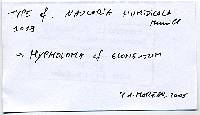 TYPE of. NAUCORIA HUMIDICOLA
Murrill
1013
→ HYPHOLOMA cf ELONGATUM
P.-A. MOREAU, 2005